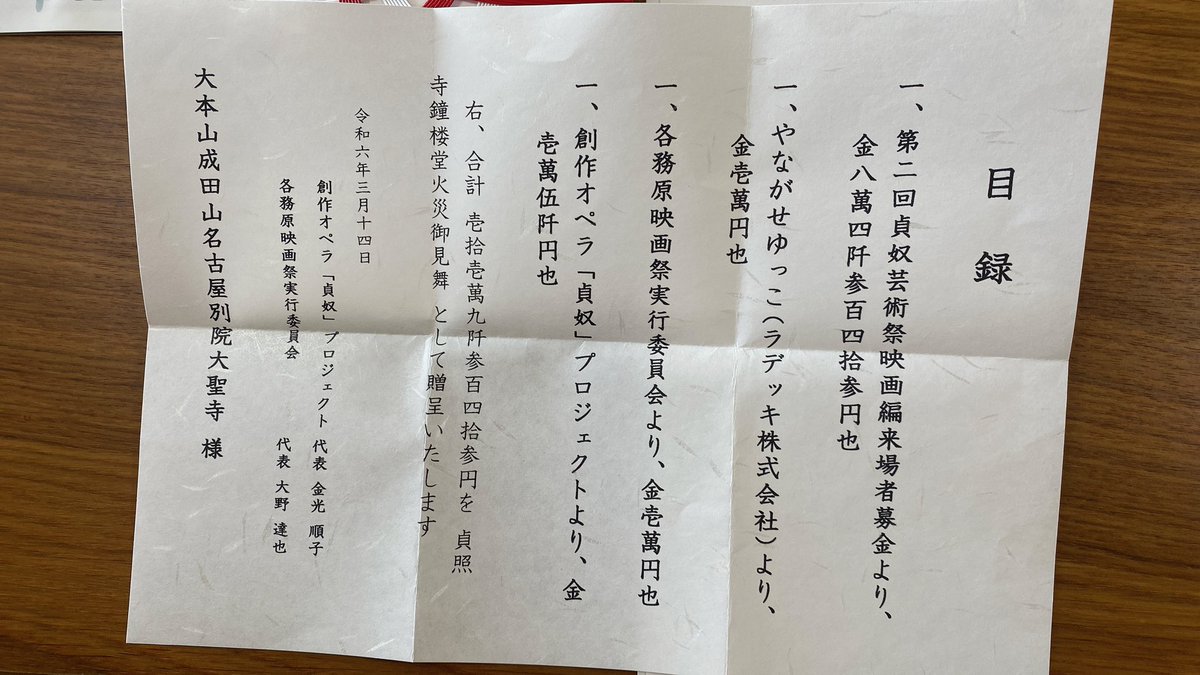 目録
一、第二回貞奴芸術祭映画編来場者募金より、
金八萬四阡参百四拾参円也
一、やながせゆっこ(ラデッキ株式会社)より、
金壱萬円也
一、各務原映画祭実行委員会より、金壱萬円也
一、創作オペラ「貞奴」プロジェクトより、金
壱萬伍阡円也
右、合計 壱拾壱萬九阡参百四拾参円を 貞照
寺鐘楼堂火災御見舞 として贈呈いたします
令和六年三月十四日
創作オペラ「貞奴」プロジェクト 代表 金光 順子
各務原映画祭実行委員会 代表 大野 達也
大本山成田山名古屋別院大聖寺 様